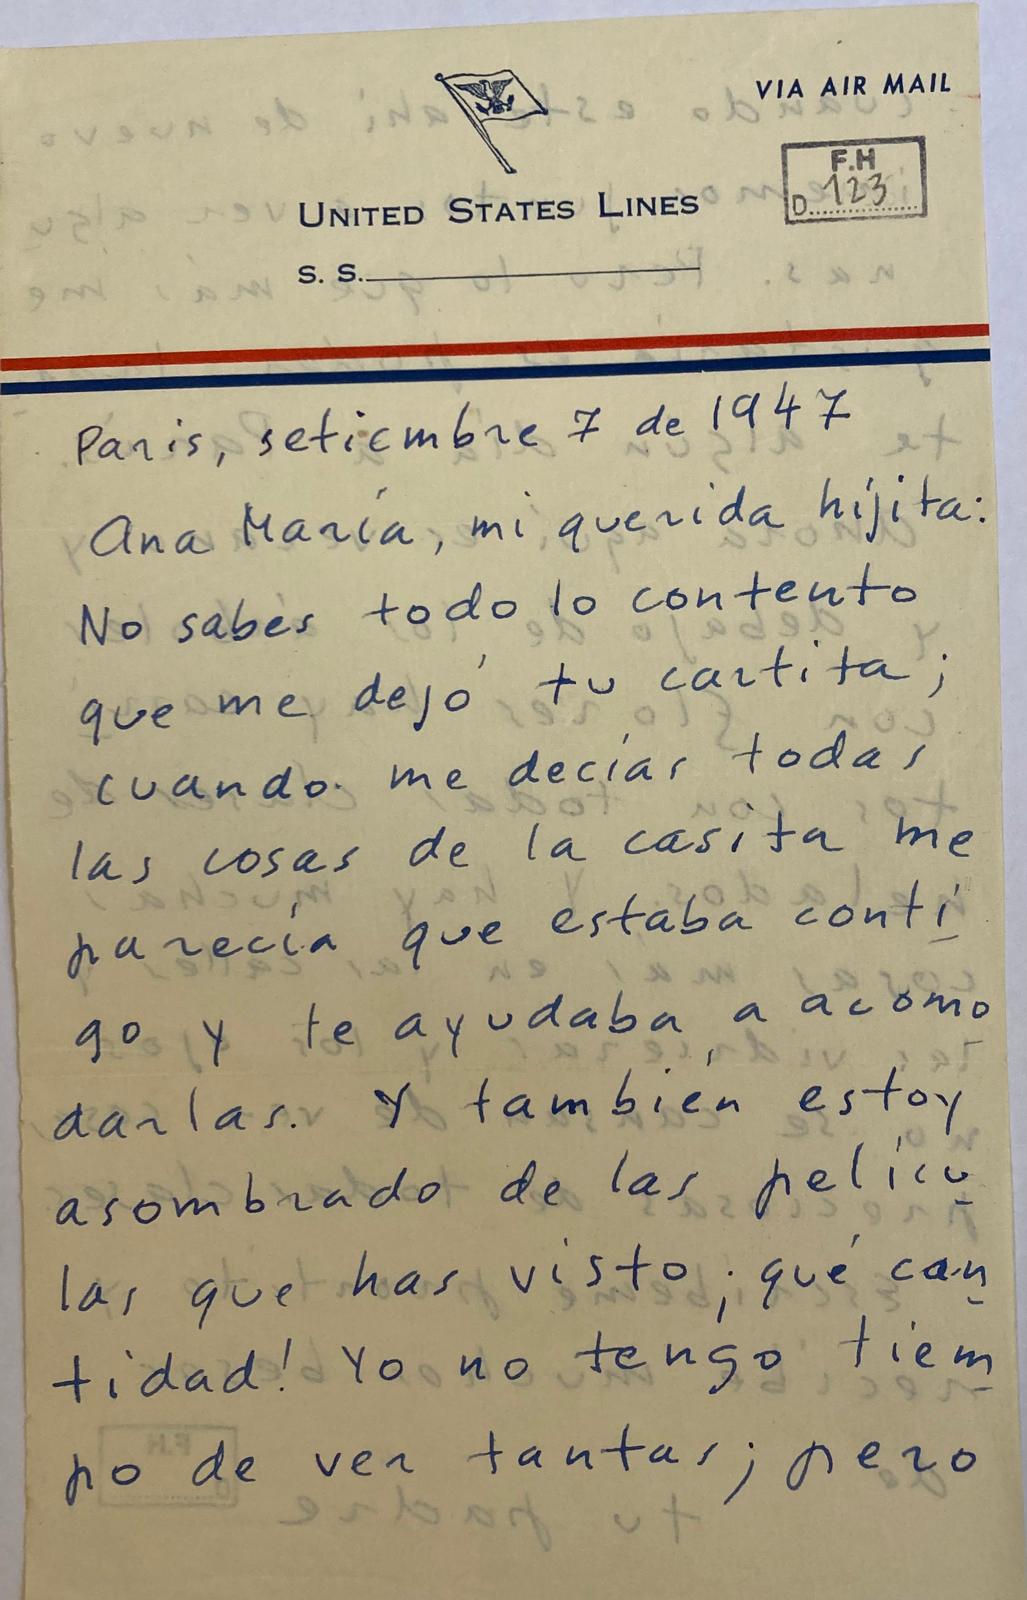 VIA AIR MAIL
F.H
D. 123
UNITED STATES LINES
S. S.
Paris, setiembre 7 de 1947
Ana María, mi querida hijita:
No sabes todo lo contento
que me dejó tu cartita;
cuando me decías todas
las cosas de la casita me
parecía que estaba conti
go y te ayudaba a acomo
darlas. Y también estoy
asombrado de las pelícu
las que has visto; qué can
tidad! Yo no tengo tiem
po de ver tantas; pero